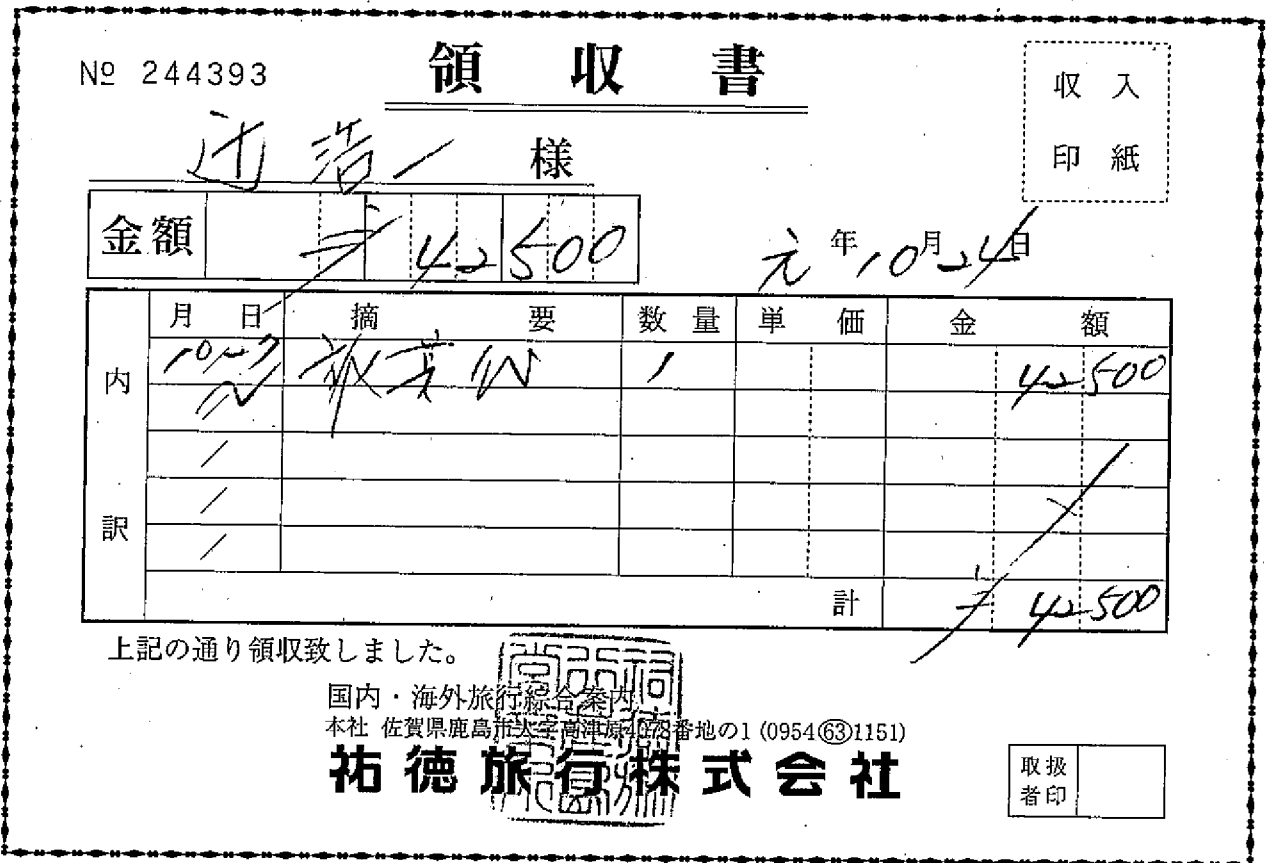 № 244393
領収書
収入
印紙
辻 浩一 様
金額 ¥42500
元年10月24日
内訳
月 日 摘要 数量 単価 金額
10/27 1 42500
/
/
/
/
計 ¥42500
上記の通り領収致しました。
国内・海外旅行綜合案内
本社 佐賀県鹿島市大字高津原4078番地の1 (0954㊿1151)
祐徳旅行株式会社
取扱
者印